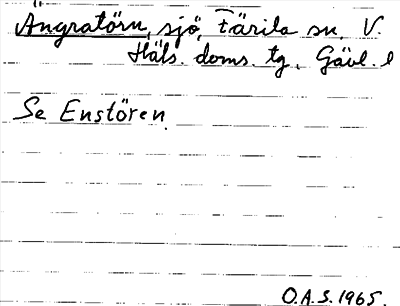 Ängratörn, sjö, Färila sn, V.
Häls. doms. tg, Gävl. l
Se Enstören
O.A.S. 1965.